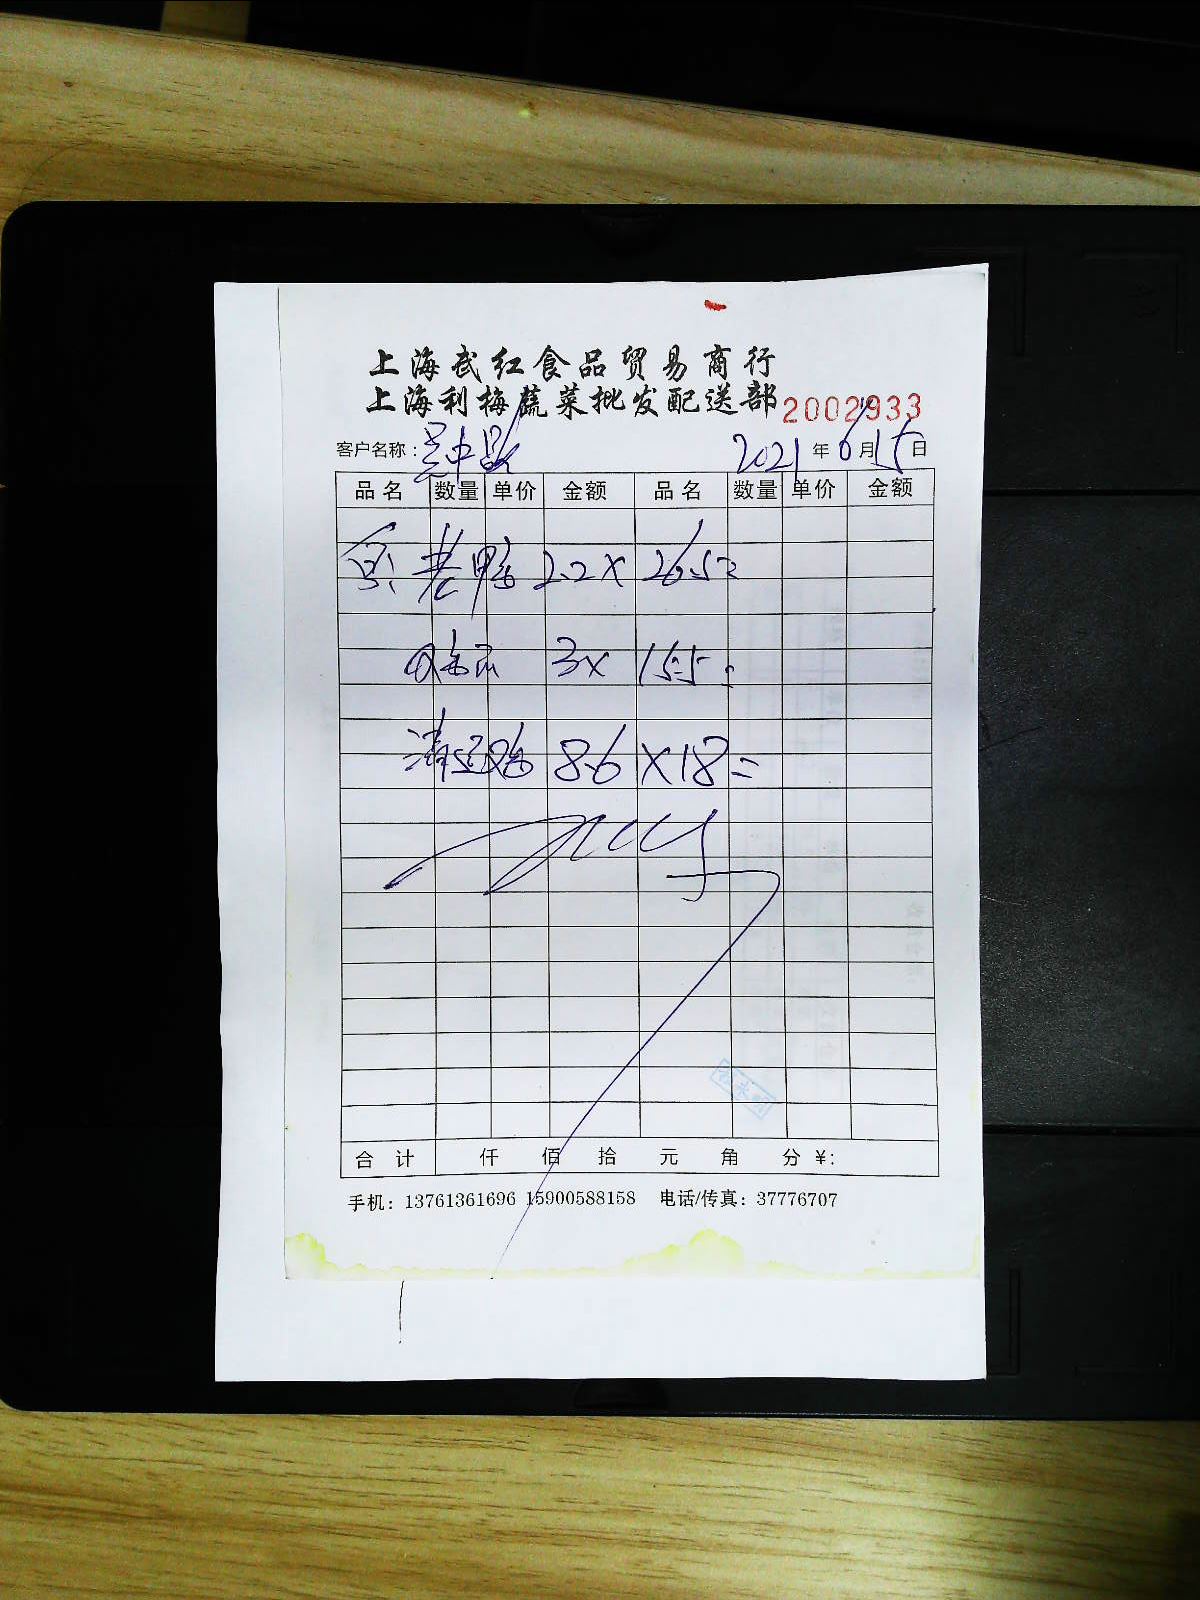 上海武红食品贸易商行
上海利梅蔬菜批发配送部 2002933
客户名称：吴中路 2021年6月15日
品名 数量 单价 金额 品名 数量 单价 金额
老鸭 2.2 x 26.5=
3x 15.5=
清远鸡 8.6 x 18=
合计 仟 佰 拾 元 角 分 ¥:
手机：13761361696 15900588158 电话/传真：37776707